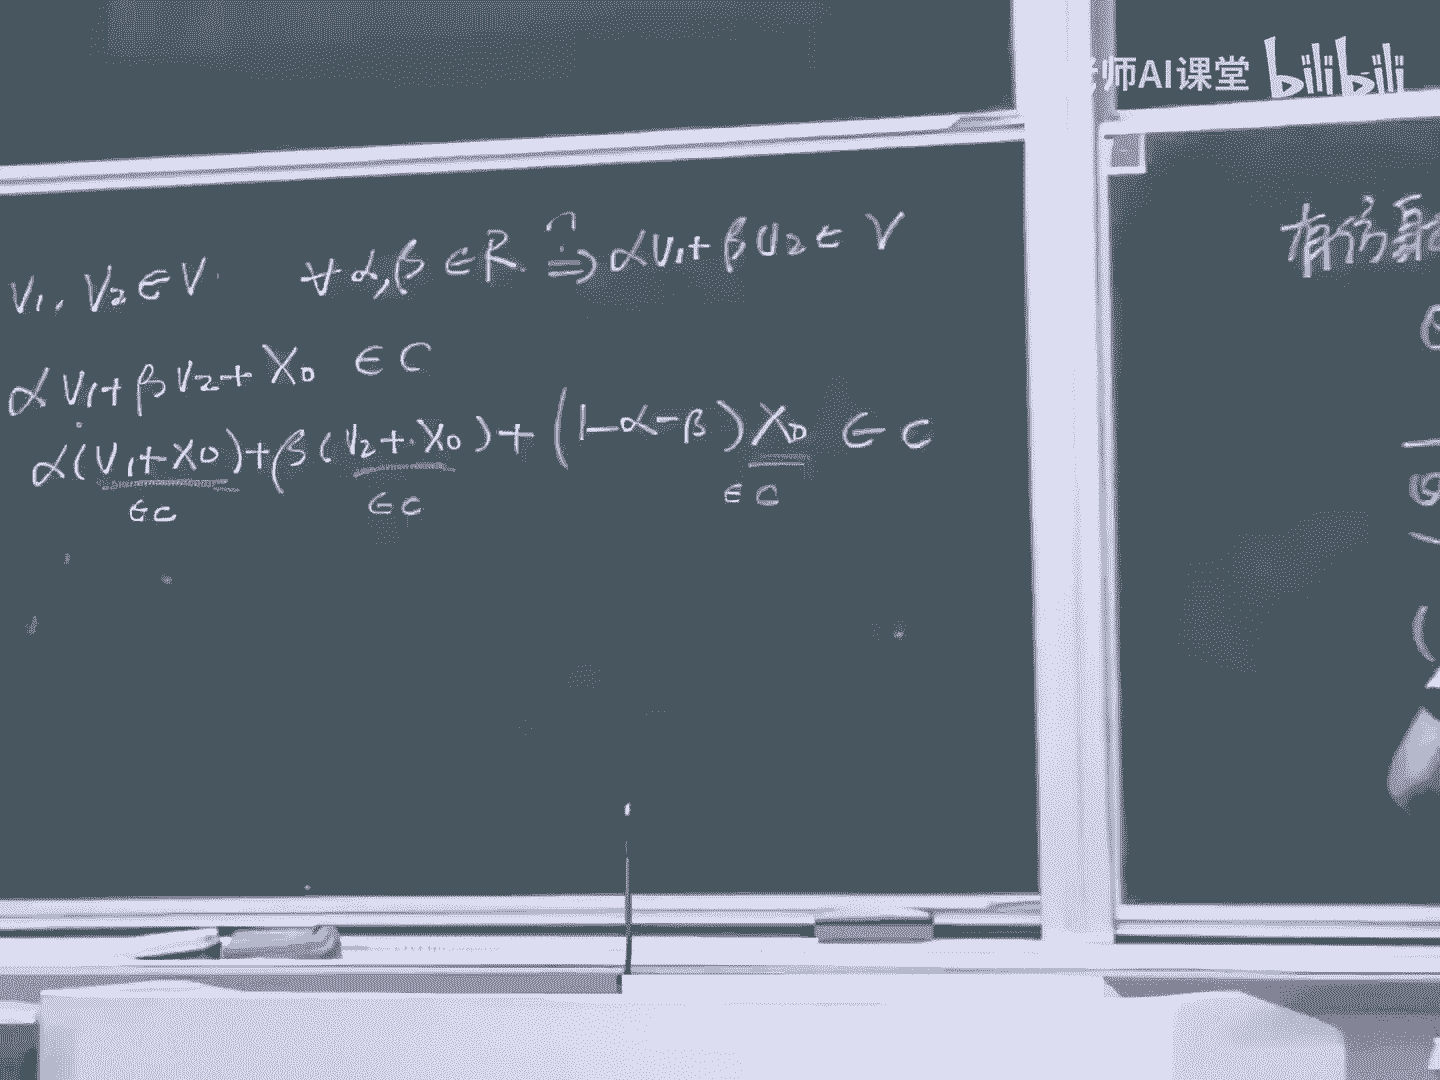 师AI课堂 bilibili
V₁, V₂ ∈ V ∀ α,β ∈ R ⇒ αV₁ + βV₂ ∈ V
αV₁ + βV₂ + X₀ ∈ C
α(V₁ + X₀) + β(V₂ + X₀) + (1-α-β) X₀ ∈ C
∈C ∈C ∈ C
有仿射